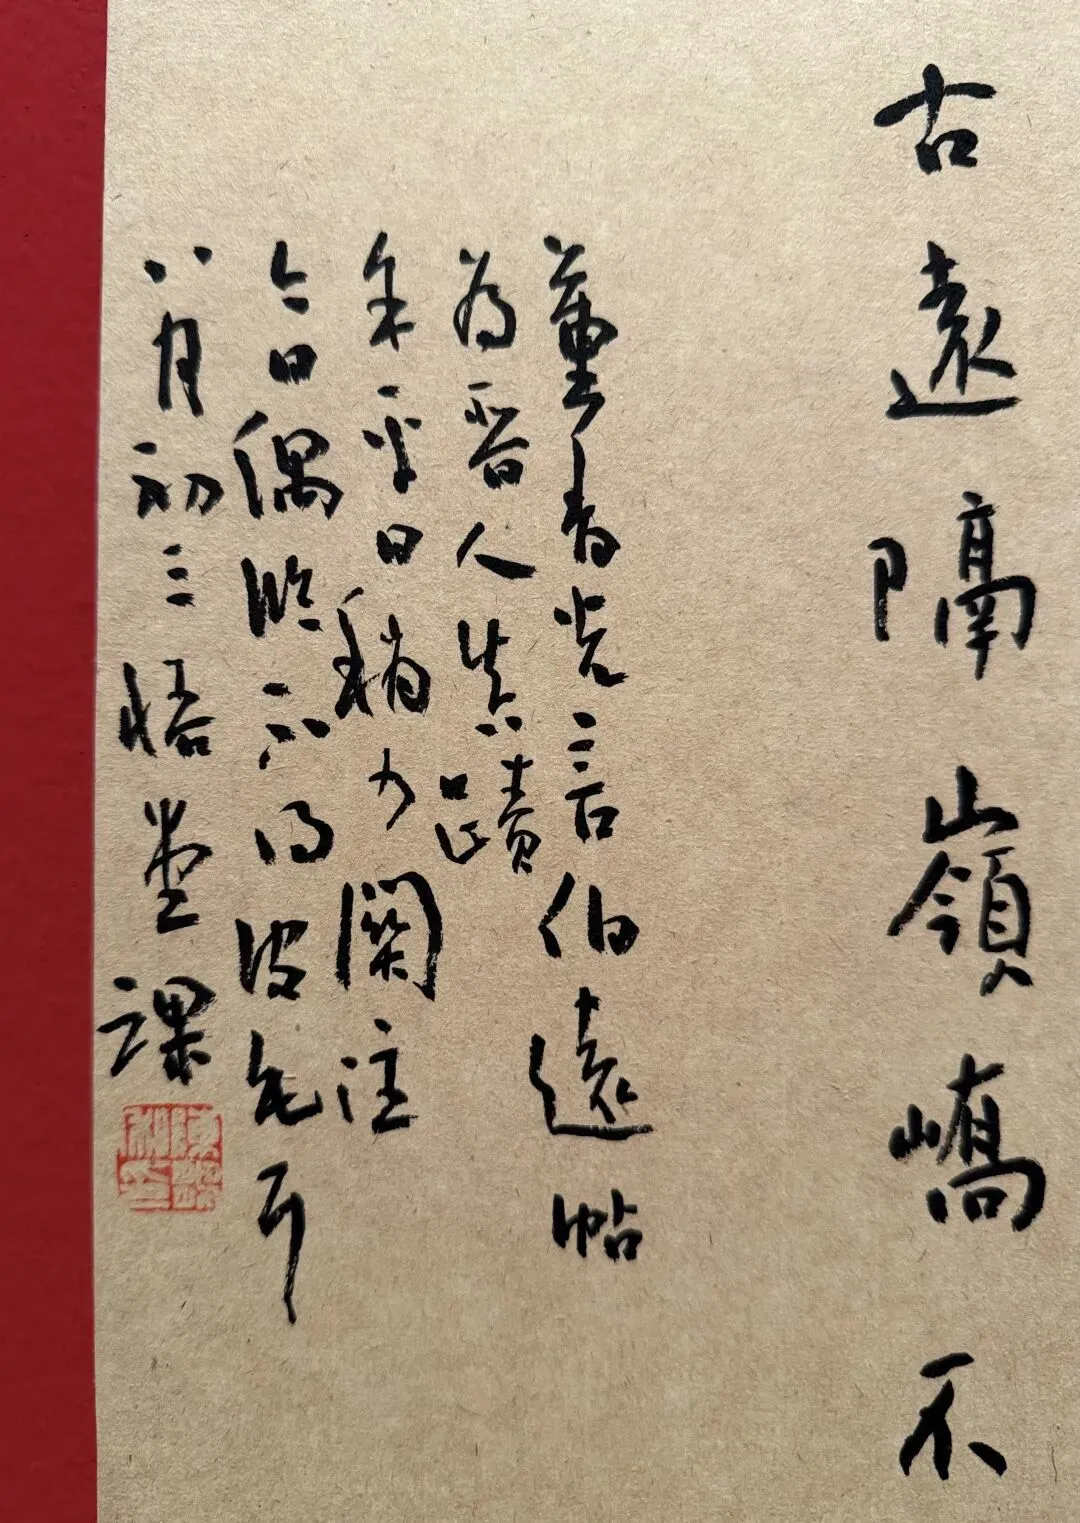 古遠隔嶺嶠不
董香光言伯遠帖
為晉人真蹟
余平日稍少關注
今日偶臨亦得皮毛耳
八月初三悟堂課